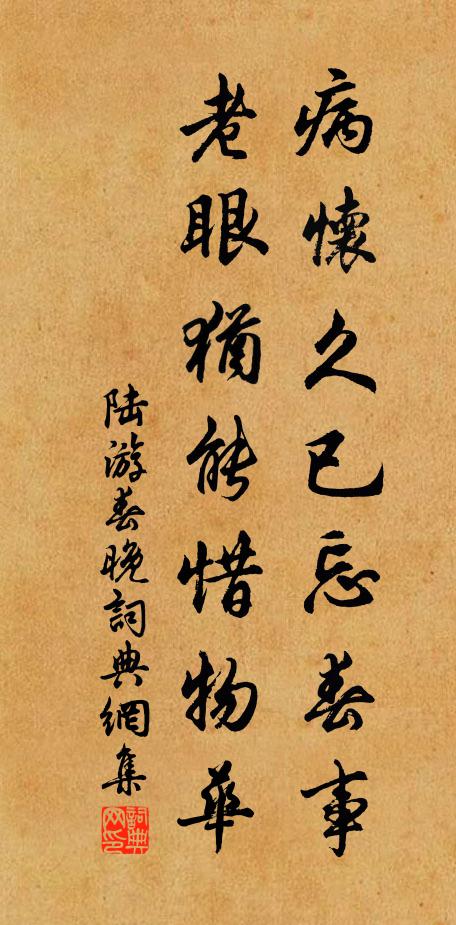 病懷久已忘春事
老眼猶能惜物華
陸游春晚詞典網集
詞典網印